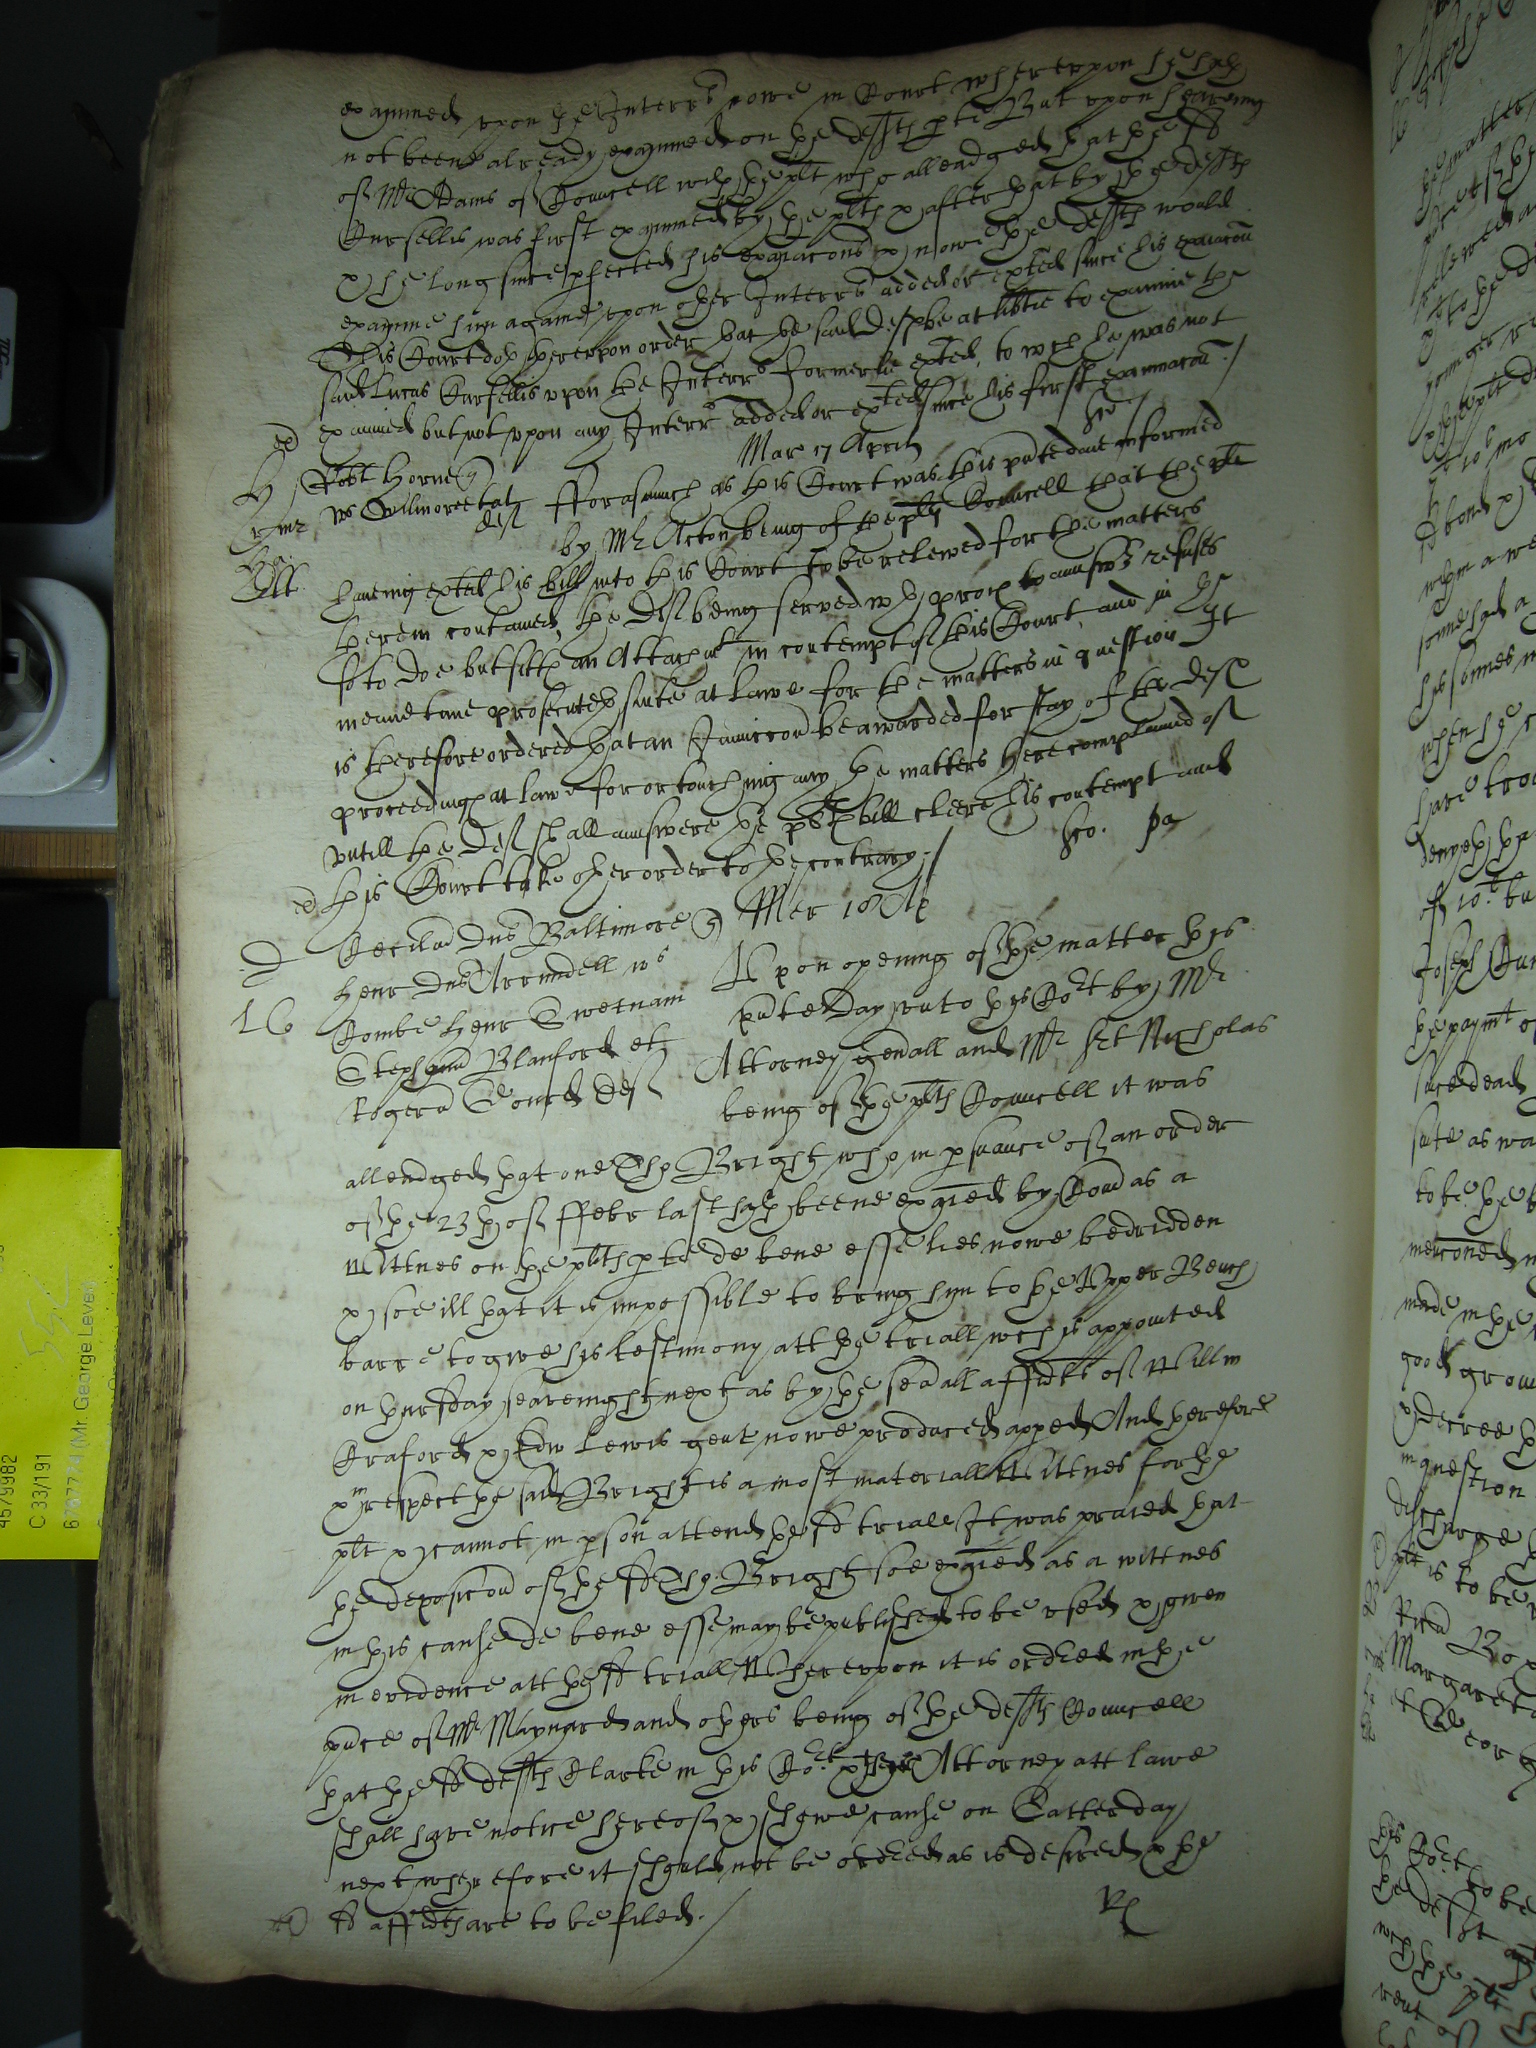 examined upon the Interr^s nowe in Court whereupon he hath
not beene already examined on the defts pte But upon heareing
of Mr Adams of Councell wth the plt who alleadged that the sd
Cursellis was first examined by the plts & after that by the defts
& he long since pfected his exaiacons & nowe the defts would
examine him againe upon other Interr^s added or exted since his exaiacon
This Court doth thereupon order that the said Defts be at libtie to examine the
said Lucas Cursellis upon the Interr^s formerlie exted, to wch he was not
examined but not upon any Interr^s added or exted since his first examinacon ./
Mar 17 April
Robt Horne q
vs Willmore et al def
fforasmuch as this Court was this pnte daie informed
by Mr Acton being of the plts Councell that the plt
haveing exted his bill into this Court to be releived for the matters
therein contained, the Deft being served wth proces to answer refuses
so to doe but sitts an Attachmt in contempt of this Court, and in the
meane time prosecuteth suite at Lawe for the matters in question It
is therefore ordered that an Iniuccon be awarded for stay of the Defts
proceedings at Lawe for or touching any the matters here complained of
untill the Deft shall answere the plts bill cleere his contempt and
this Court take other order to the contrary ./
Cecilius Dns Baltimore q
Mer 18 Ap
Henr Dns Arrundell vs
Combe Henr Swetnam
Stephanu Blanford et
Rogeru Gouch def
Upon opening of the matter this
pnte day unto this Cort by Mr
Attorney genall and Mr Nicholas
being of the plts Councell it was
alleadged that one Tho Bright who in psuance of an order
of the 23th of ffebr last hath beene exaied by Comrs as a
Wittnes on the plts pte de bene esse lies nowe bedridden
& soe ill that it is impossible to bring him to the Upper Bench
barre to give his testimony att the triall wch is appointed
on thursday seaveinght next as by the sevall affidts of Willm
Craford & Edw Lewis gent nowe produced apped And therefore
& in respect the said Bright is a most materiall Wittnes for the
plt & cannot in pson attend the sd triall It was praied that
the deposicon of the sd Tho: Bright soe exaied as a wittnes
in this cause de bene esse may be published to be used & given
in evidence att the sd triall Whereupon it is ordered in the
pnce of Mr Maynard and others being of the defts Councell
that the sd defts Clarke in this Cort & their Attorney att Lawe
shall have notice hereof & shewe cause on Satterday
next wherefore it should not be ordered as is desired & the
sd affidts are to be filed ./
4579982
C 33/191
(Mr. George Lever)